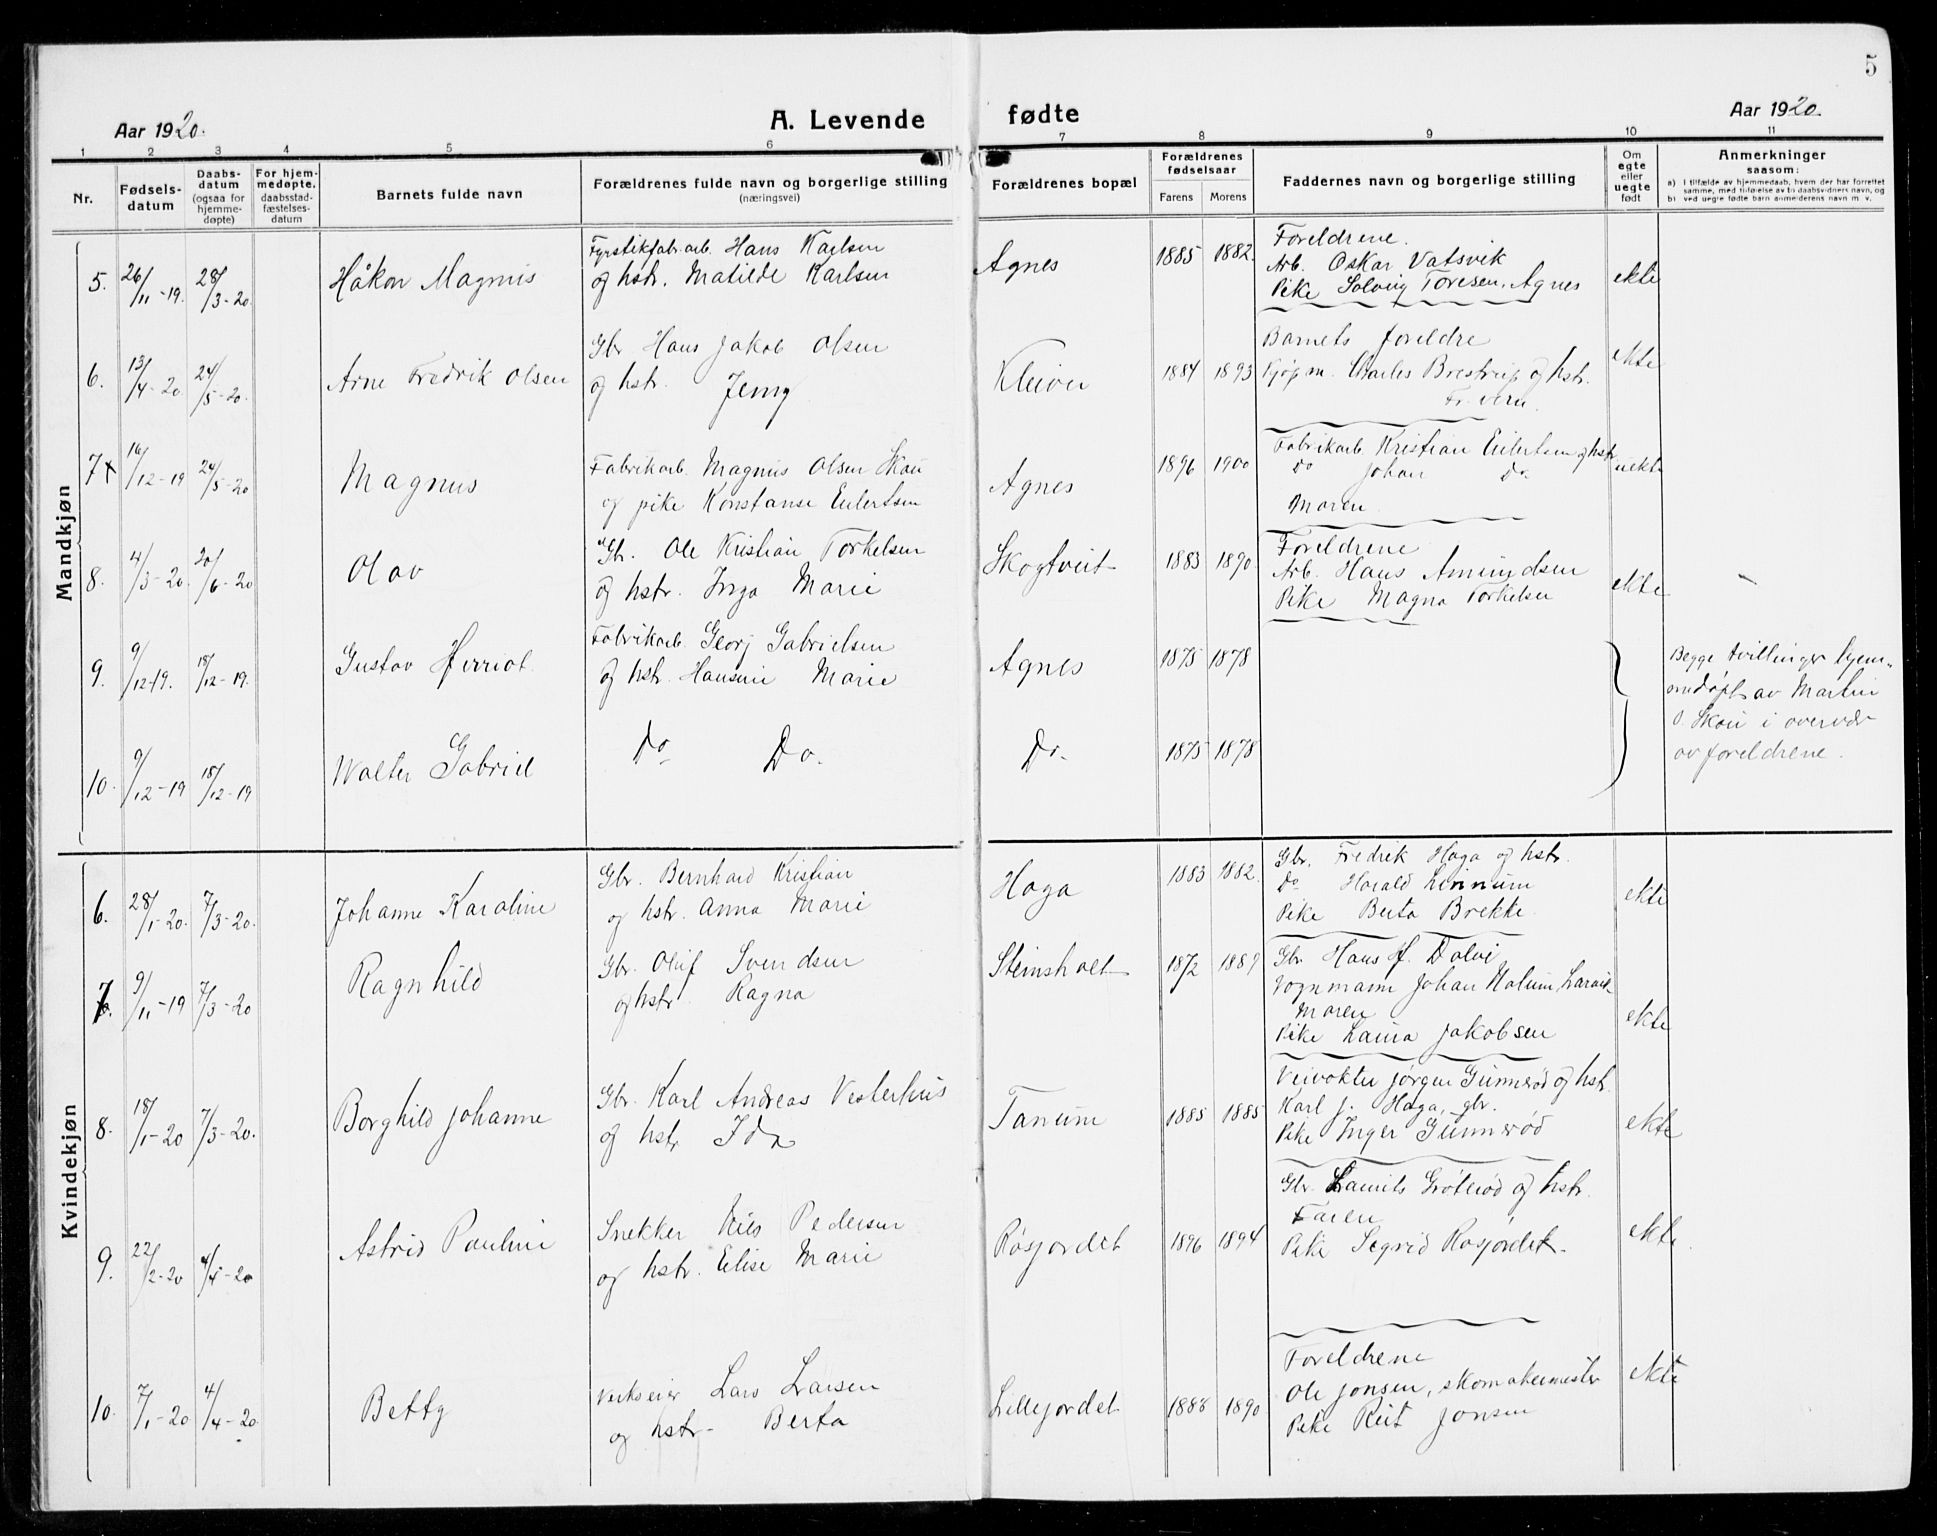 5
Aar 1920.
A. Levende
fødte
Aar 1920.
1 2 3 4 5 6 7 8 9 10 11
Nr.
Fødsels-
datum
Daabs-
datum
(ogsaa for
hjemme-
døpte)
For hjem-
medøpte.
daabsstad-
fæstelses-
datum
Barnets fulde navn
Forældrenes fulde navn og borgerlige stilling
(næringsvei)
Forældrenes bopæl
Forældrenes
fødselsaar
Farens Morens
Faddernes navn og borgerlige stilling
Om
egte
eller
uegte
født
Anmerkninger
saasom:
a) I tilfælde av hjemmedaab, hvem der har forrettet
samme, med tilføielse av to daabsvidners navn, og
b) ved uegte fødte barn anmelderens navn m. v.
Mandkjøn
5. 26/11-19. 28/3-20.
Håkon Magnus
Fyrstikfabr.arb. Hans Karlsen
og hstr. Matilde Karlsen
Agnes
1885 1882.
Foreldrene.
Arb. Oskar Vatsvik
Pike Solveig Toresen, Agnes
ekte
6. 13/4-20. 24/5-20.
Arne Fredrik Olsen
Gbr Hans Jakob Olsen
og hstr. Jenny
Kleiver
1884 1893
Barnets foreldre
Kjøpm. Charles Brestrup og hstr.
ekte
7 16/12-19 24/5-20
Magnus
Fabrikarb. Magnus Olsen Skau
og pike Konstanse Eilertsen
Agnes
1896 1900
Fabrikarb Kristian Eilertsen og hstr
Do Johan Do
Moren
uekte
8. 4/3-20. 20/6-20
Olav
Gbr. Ole Kristian Torkelsen
og hstr. Inga Marie
Skogtveit
1883 1890
Foreldrene
Arb. Hans Amundsen
Pike Magna Torkelsen
ekte
-
9. 9/12-19. 18/12-19.
Gustav Herriot
Fabrikarb. Georg Gabrielsen
og hstr. Hansine Marie
Agnes
1875 1878
Begge tvillinger hjem-
medøpt av Martin
O. Skau i overvær
av foreldrene.
10. 9/12-19 18/12-19
Walter Gabriel
Do Do.
Do.
1875 1878
Kvindekjøn
6. 28/1-20. 7/3-20.
Johanne Karoline
Gbr. Bernhard Kristian
og hstr. Anna Marie
Haga
1883 1882.
Gbr. Fredrik Haga og hstr.
Do Harald Linnum
Pike Berta Brekke
ekte
7. 9/11-19 7/3-20
Ragnhild
Gbr. Oluf Svendsen
og hstr. Ragna
Steinsholt
1872 1889
Gbr Hans H. Dalvi
Vognmann Johan Holum, Larvik
Moren
Pike Laura Jakobsen
ekte
8. 18/1-20 7/3-20.
Borghild Johanne
Gbr. Karl Andreas Vesterhus
og hstr Ida
Tanum
1885 1885
Veivokter Jørgen Gunnerød og hstr.
Karl J. Haga, gbr.
Pike Inger Gunnerød
ekte
9. 22/2-20 4/4-20
Astrid Pauline
Snekker Nils Pedersen
og hstr. Elise Marie
Røsjordet
1896 1894
Gbr. Laurits Grøterød og hstr.
Faren
Pike Segrid Røsjordet.
ekte.
10. 7/1-20 4/4-20
Betty
Verkseier Lars Larsen
og hstr- Berta
Lillejordet
1888 1890
Foreldrene
Ole Jonsen, skomakermester
Pike Rut Jonsen
ekte